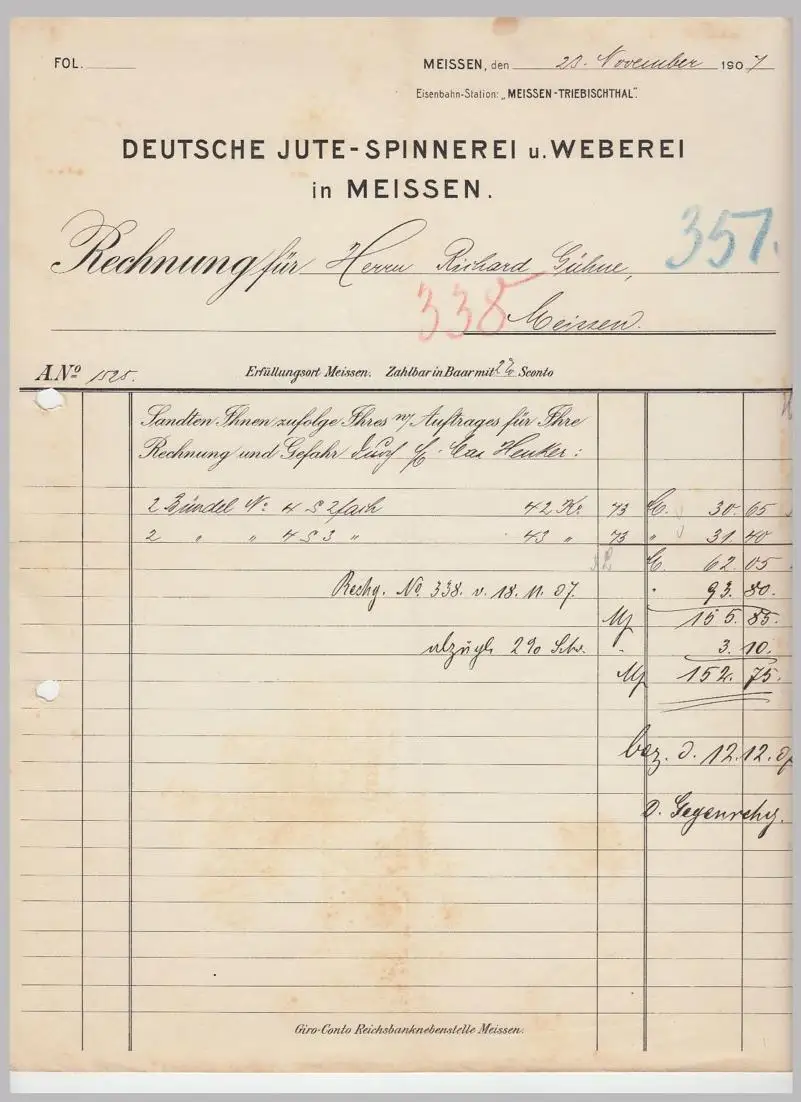 FOL.
MEISSEN, den 23. November 1907
Eisenbahn-Station: „MEISSEN-TRIEBISCHTHAL".
DEUTSCHE JUTE-SPINNEREI u. WEBEREI
in MEISSEN.
357.
Rechnung für Herrn Richard Gühne,
338
Meissen.
A.No 1525.
Erfüllungsort Meissen. Zahlbar in Baar mit 2% Sconto
Sandten Ihnen zufolge Ihres w/ Auftrages für Ihre
Rechnung und Gefahr durch Henker:
2 Bündel No. 4 S 2fach 42 Ko 73 M. 30. 65
2 " " 4 S 3 " 43 " 73 " 31. 40
M. 62. 05
Rechg. No. 338. v. 18. 11. 07. " 93. 80.
M 155. 85.
abzügl. 2% Sto. " 3. 10.
M 152. 75.
bez. d. 12.12. 07
d. Gegenrchg.
Giro-Conto Reichsbanknebenstelle Meissen.